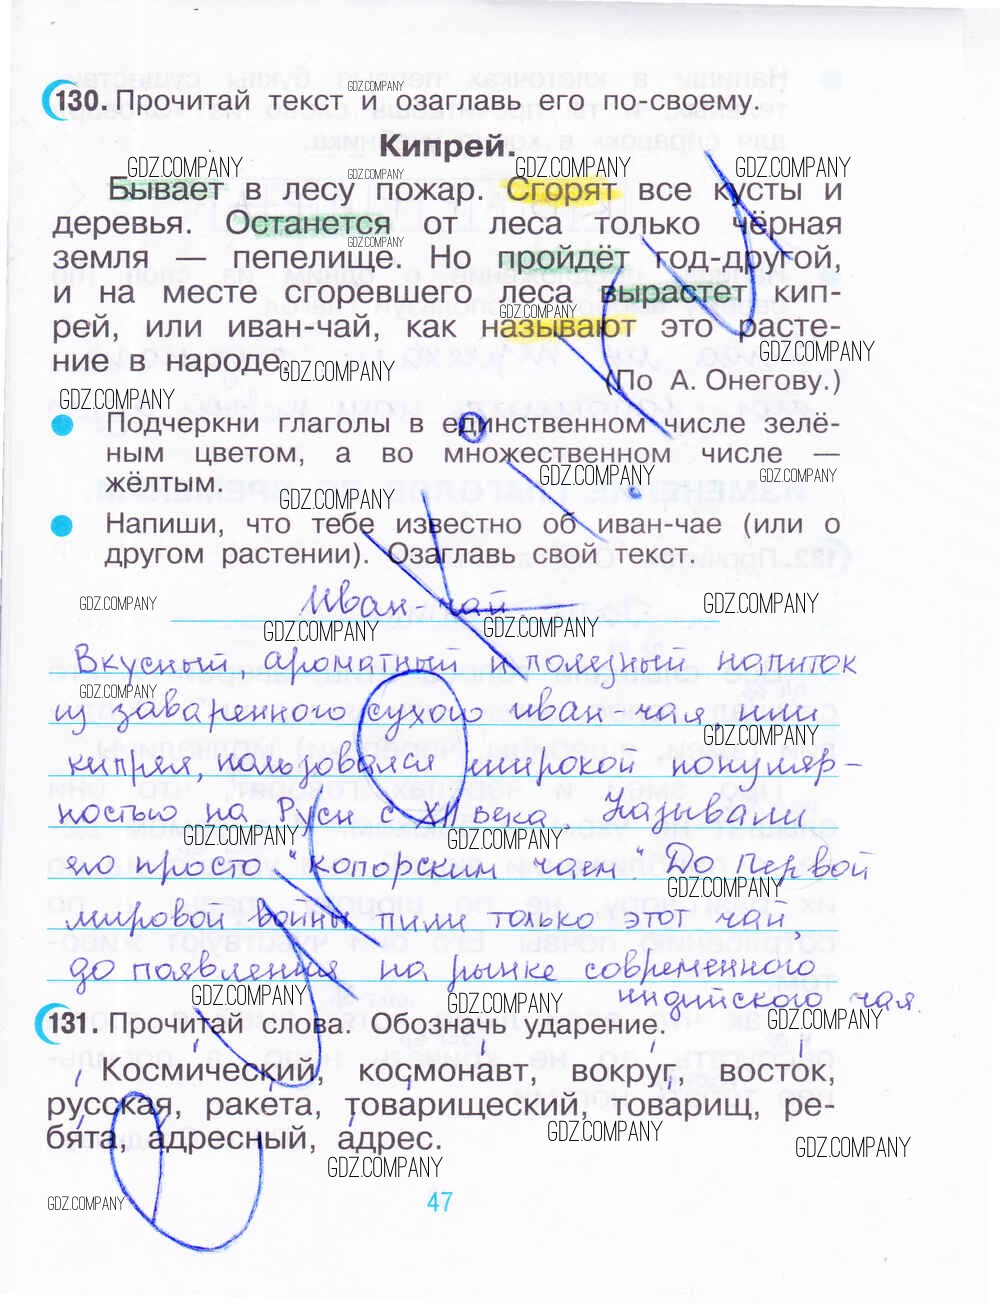 130. Прочитай текст и озаглавь его по-своему.
Кипрей.
Бывает в лесу пожар. Сгорят все кусты и
деревья. Останется от леса только чёрная
земля — пепелище. Но пройдёт год-другой,
и на месте сгоревшего леса вырастет кип-
рей, или иван-чай, как называют это расте-
ние в народе.
(По А. Онегову.)
Подчеркни глаголы в единственном числе зелё-
ным цветом, а во множественном числе —
жёлтым.
Напиши, что тебе известно об иван-чае (или о
другом растении). Озаглавь свой текст.
Иван-чай.
Вкусный, ароматный и полезный напиток
из заваренного сухого иван чая, или
кипрея, пользовался широкой популяр-
ностью на Руси с XII века. Называли
его просто "копорским чаем". До Первой
мировой войны пили только этот чай,
до появления на рынке современного
индийского чая.
131. Прочитай слова. Обозначь ударение.
Космический, космонавт, вокруг, восток,
русская, ракета, товарищеский, товарищ, ре-
бята, адресный, адрес.
47
GDZ.COMPANY